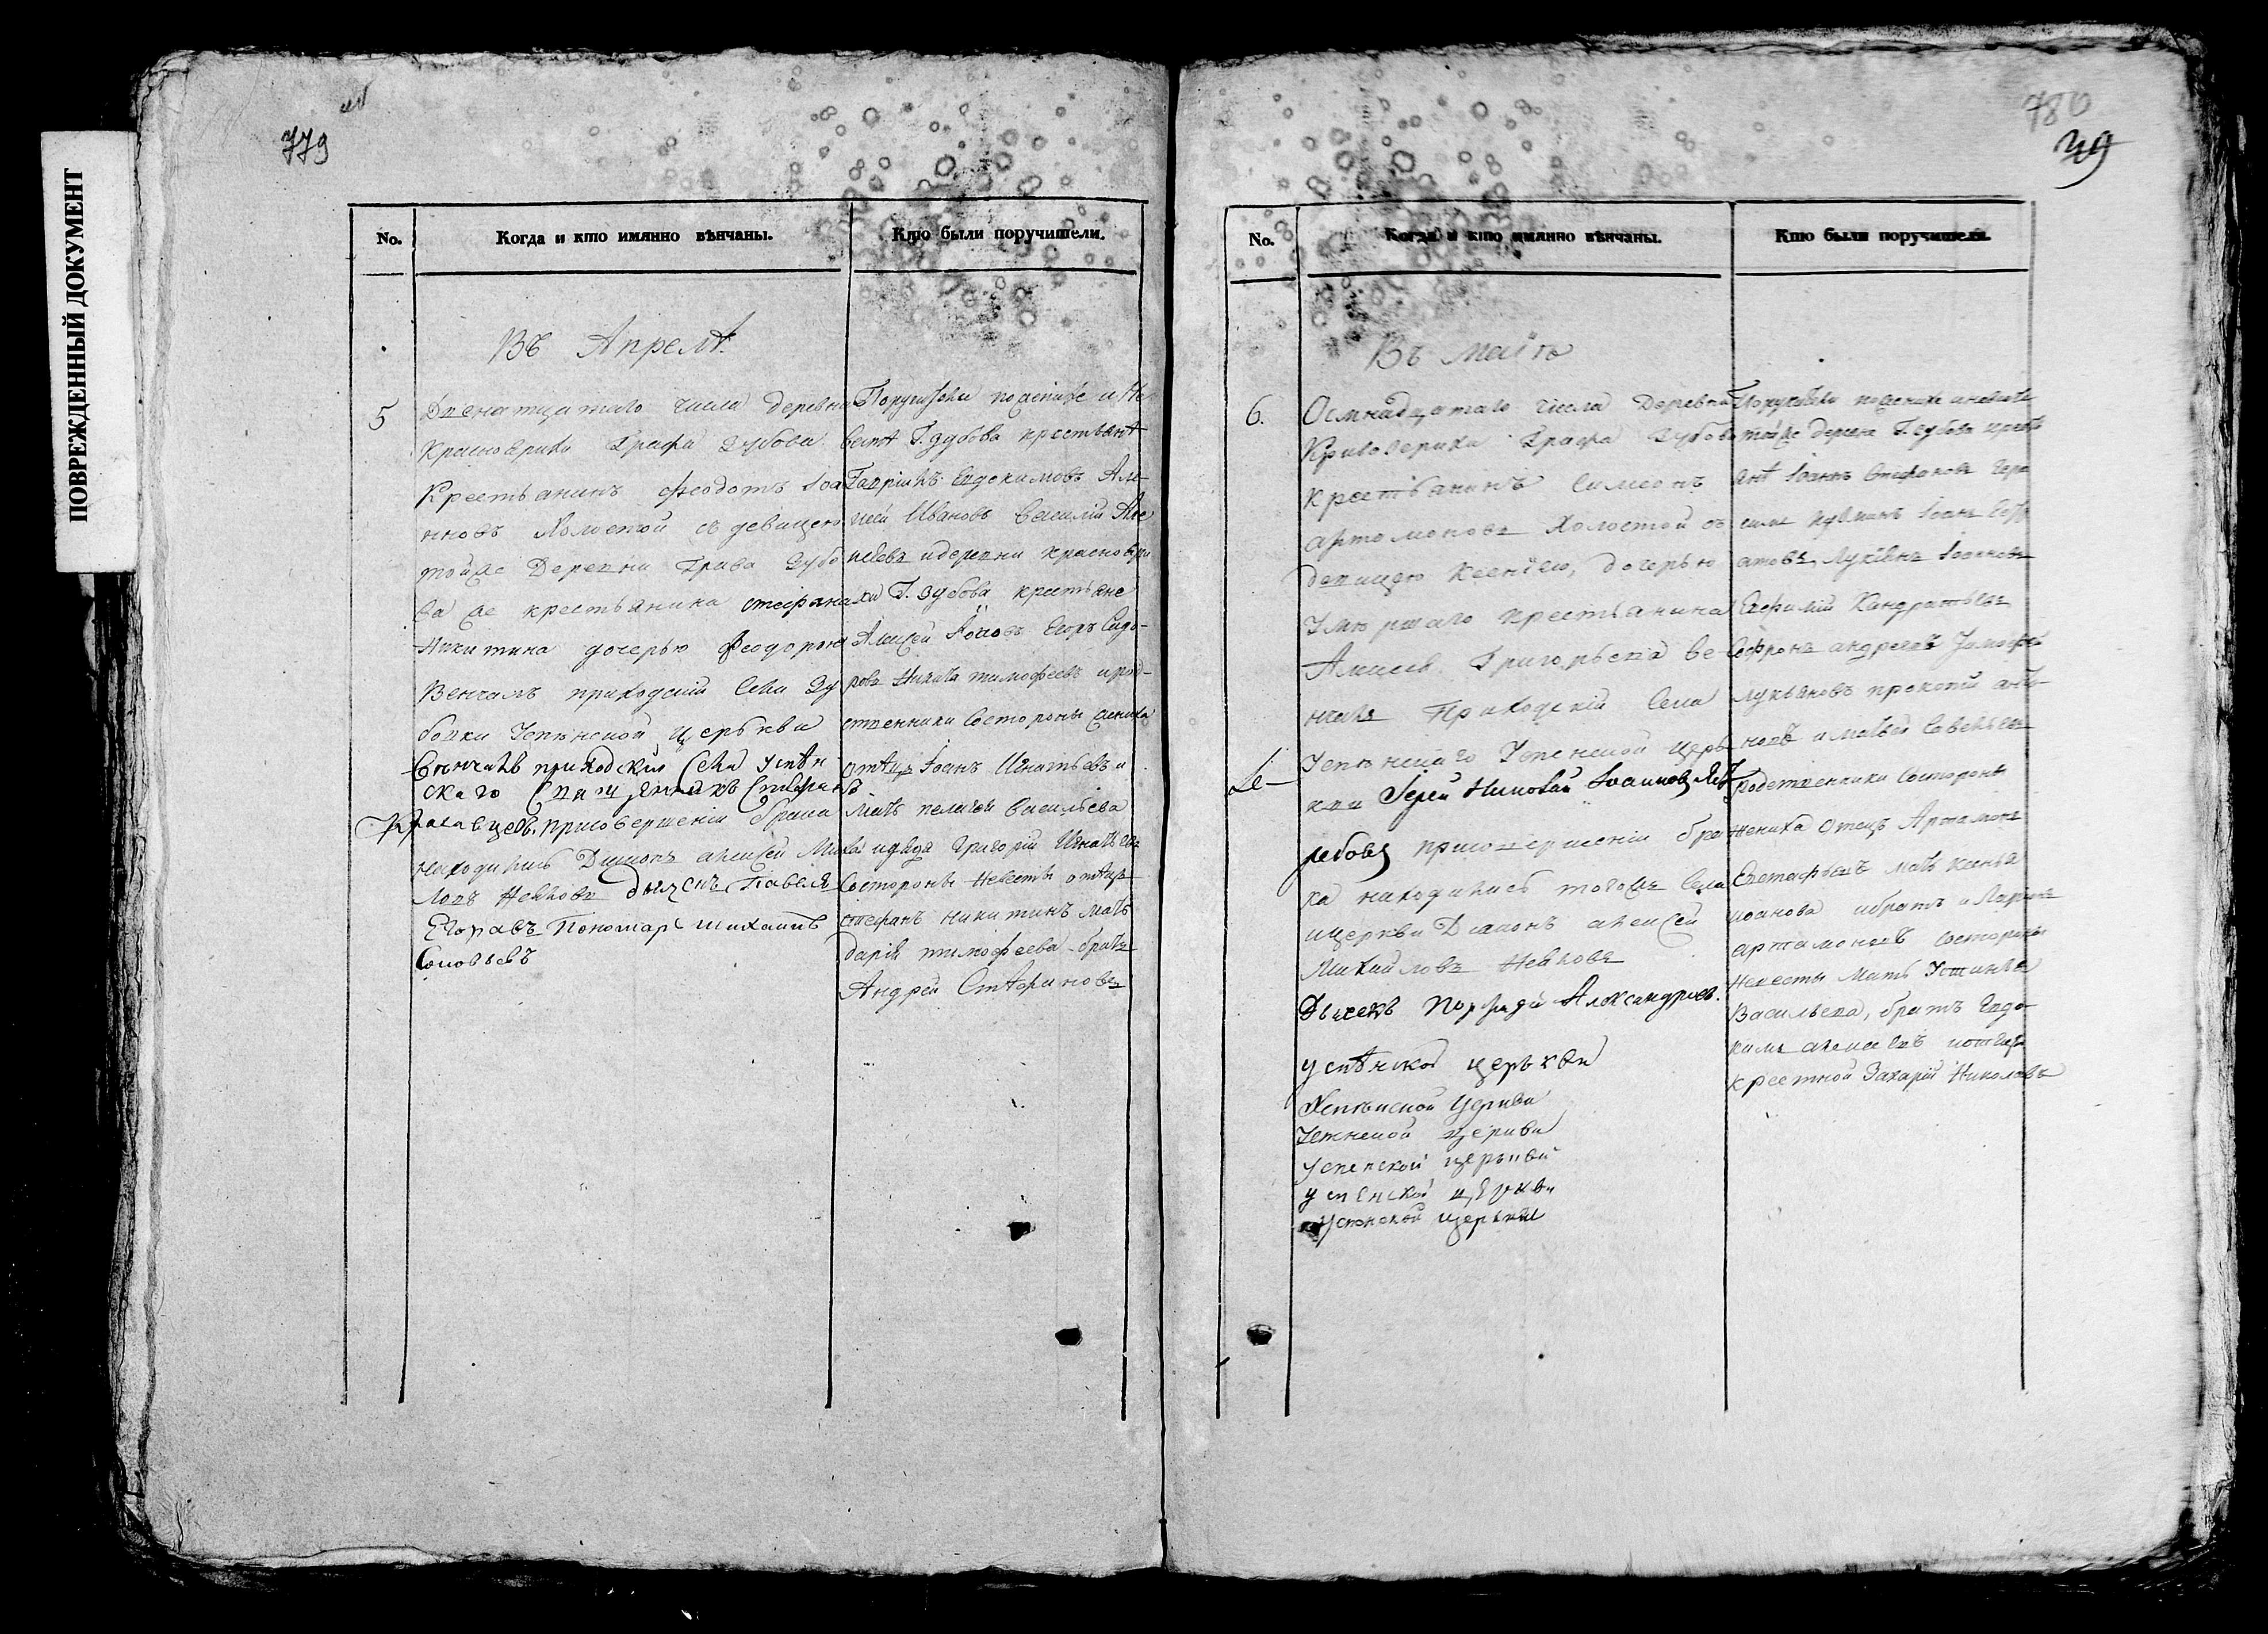 ПОВРЕЖДЕННЫЙ ДОКУМЕНТ
779
No.
Когда и кто имянно вѣнчаны.
Кто были поручители.
Въ Апрелѣ
5
числа деревни
Графа Зубова
Крестьянинъ Феодотъ Іоа
нновъ Холостой съ девицею
тойже Деревни Графа Зубо
ва же крестьянина стефана
Никитина дочерью Феодорою
Венчалъ приходскій Села Зу
бовки Успенской Церькви
Свѣнчалъ приходский Села Успѣн
скаго Священникъ Стефанъ
присовершеніи брака
находились Діаконъ алексей Михаи
ловъ дьячекъ Павелъ
Егоравъ Пономарь михаилъ
Соловьевъ
Поручители поженихе и Не
весте Г. Зубова крестьяне
Гавріилъ Евдокимовъ Але
ксей Ивановъ Василій Але
ксеевъ идеревни
Г. Зубова крестьяне
Алексей Егоръ Сидо-
ровъ Никита тимофеевъ ирод-
ственники Состороны жениха
отецъ Іоанъ Игнатьевъ и
Мать пелагея Васильева
идядя Григорій Игнатьевъ
Состороны Невесты отецъ
стефанъ никитинъ Мать
дарія тимофеева братъ
Андрей
780
No.
Когда и кто имянно вѣнчаны.
Кто были поручители.
Въ Маіѣ
6.
Осмнадцатаго числа Деревни
Графа Зубова
крестьянинъ Симеонъ
артомоновъ Холостой съ
девицею Ксеніею, дочерью
Умершаго крестьянина
Алексея Григорьева ве-
нчалъ Приходскій Села
Успенскаго Успенской церь
кви Іерей Николай Іоанновъ
присовершеніи бра
ка находились тогоже Села
ицеркви Діаконъ алексей
Михайловъ
Дьячекъ Александровъ.
успѣнской церькви
Успенской Церкви
Успенской церкви
успенской церькви
успенской церкви
успенской церькви
Поручители поженихе иневесте
тойже деревни Г. Зубова кресть
яне Іоаннъ Стефановъ Гера
симъ Іоанъ
Лукіянъ Іоанновъ
Евфимій Кандратьевъ
Софронъ андреевъ Тимофей
лукьяновъ прокопій анто-
новъ иматвей Савельевъ
родственники Состороны
жениха Отецъ Артамонъ
Евстафьевъ мать
иоанова ибратъ
артамоновъ Состороны
Невесты Мать Устинья
Васильева, братъ Евдо-
кимъ алексеевъ иотецъ
крестной Захарій Николаевъ